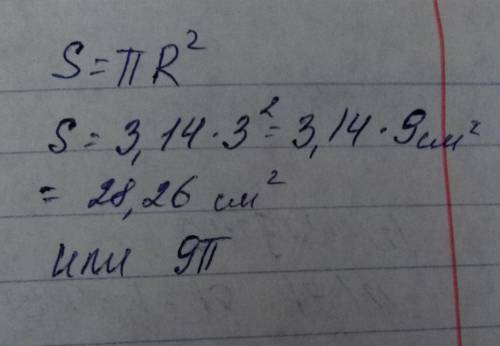 S = πR²
S = 3,14 · 3² = 3,14 · 9 см²
= 28,26 см²
или 9π